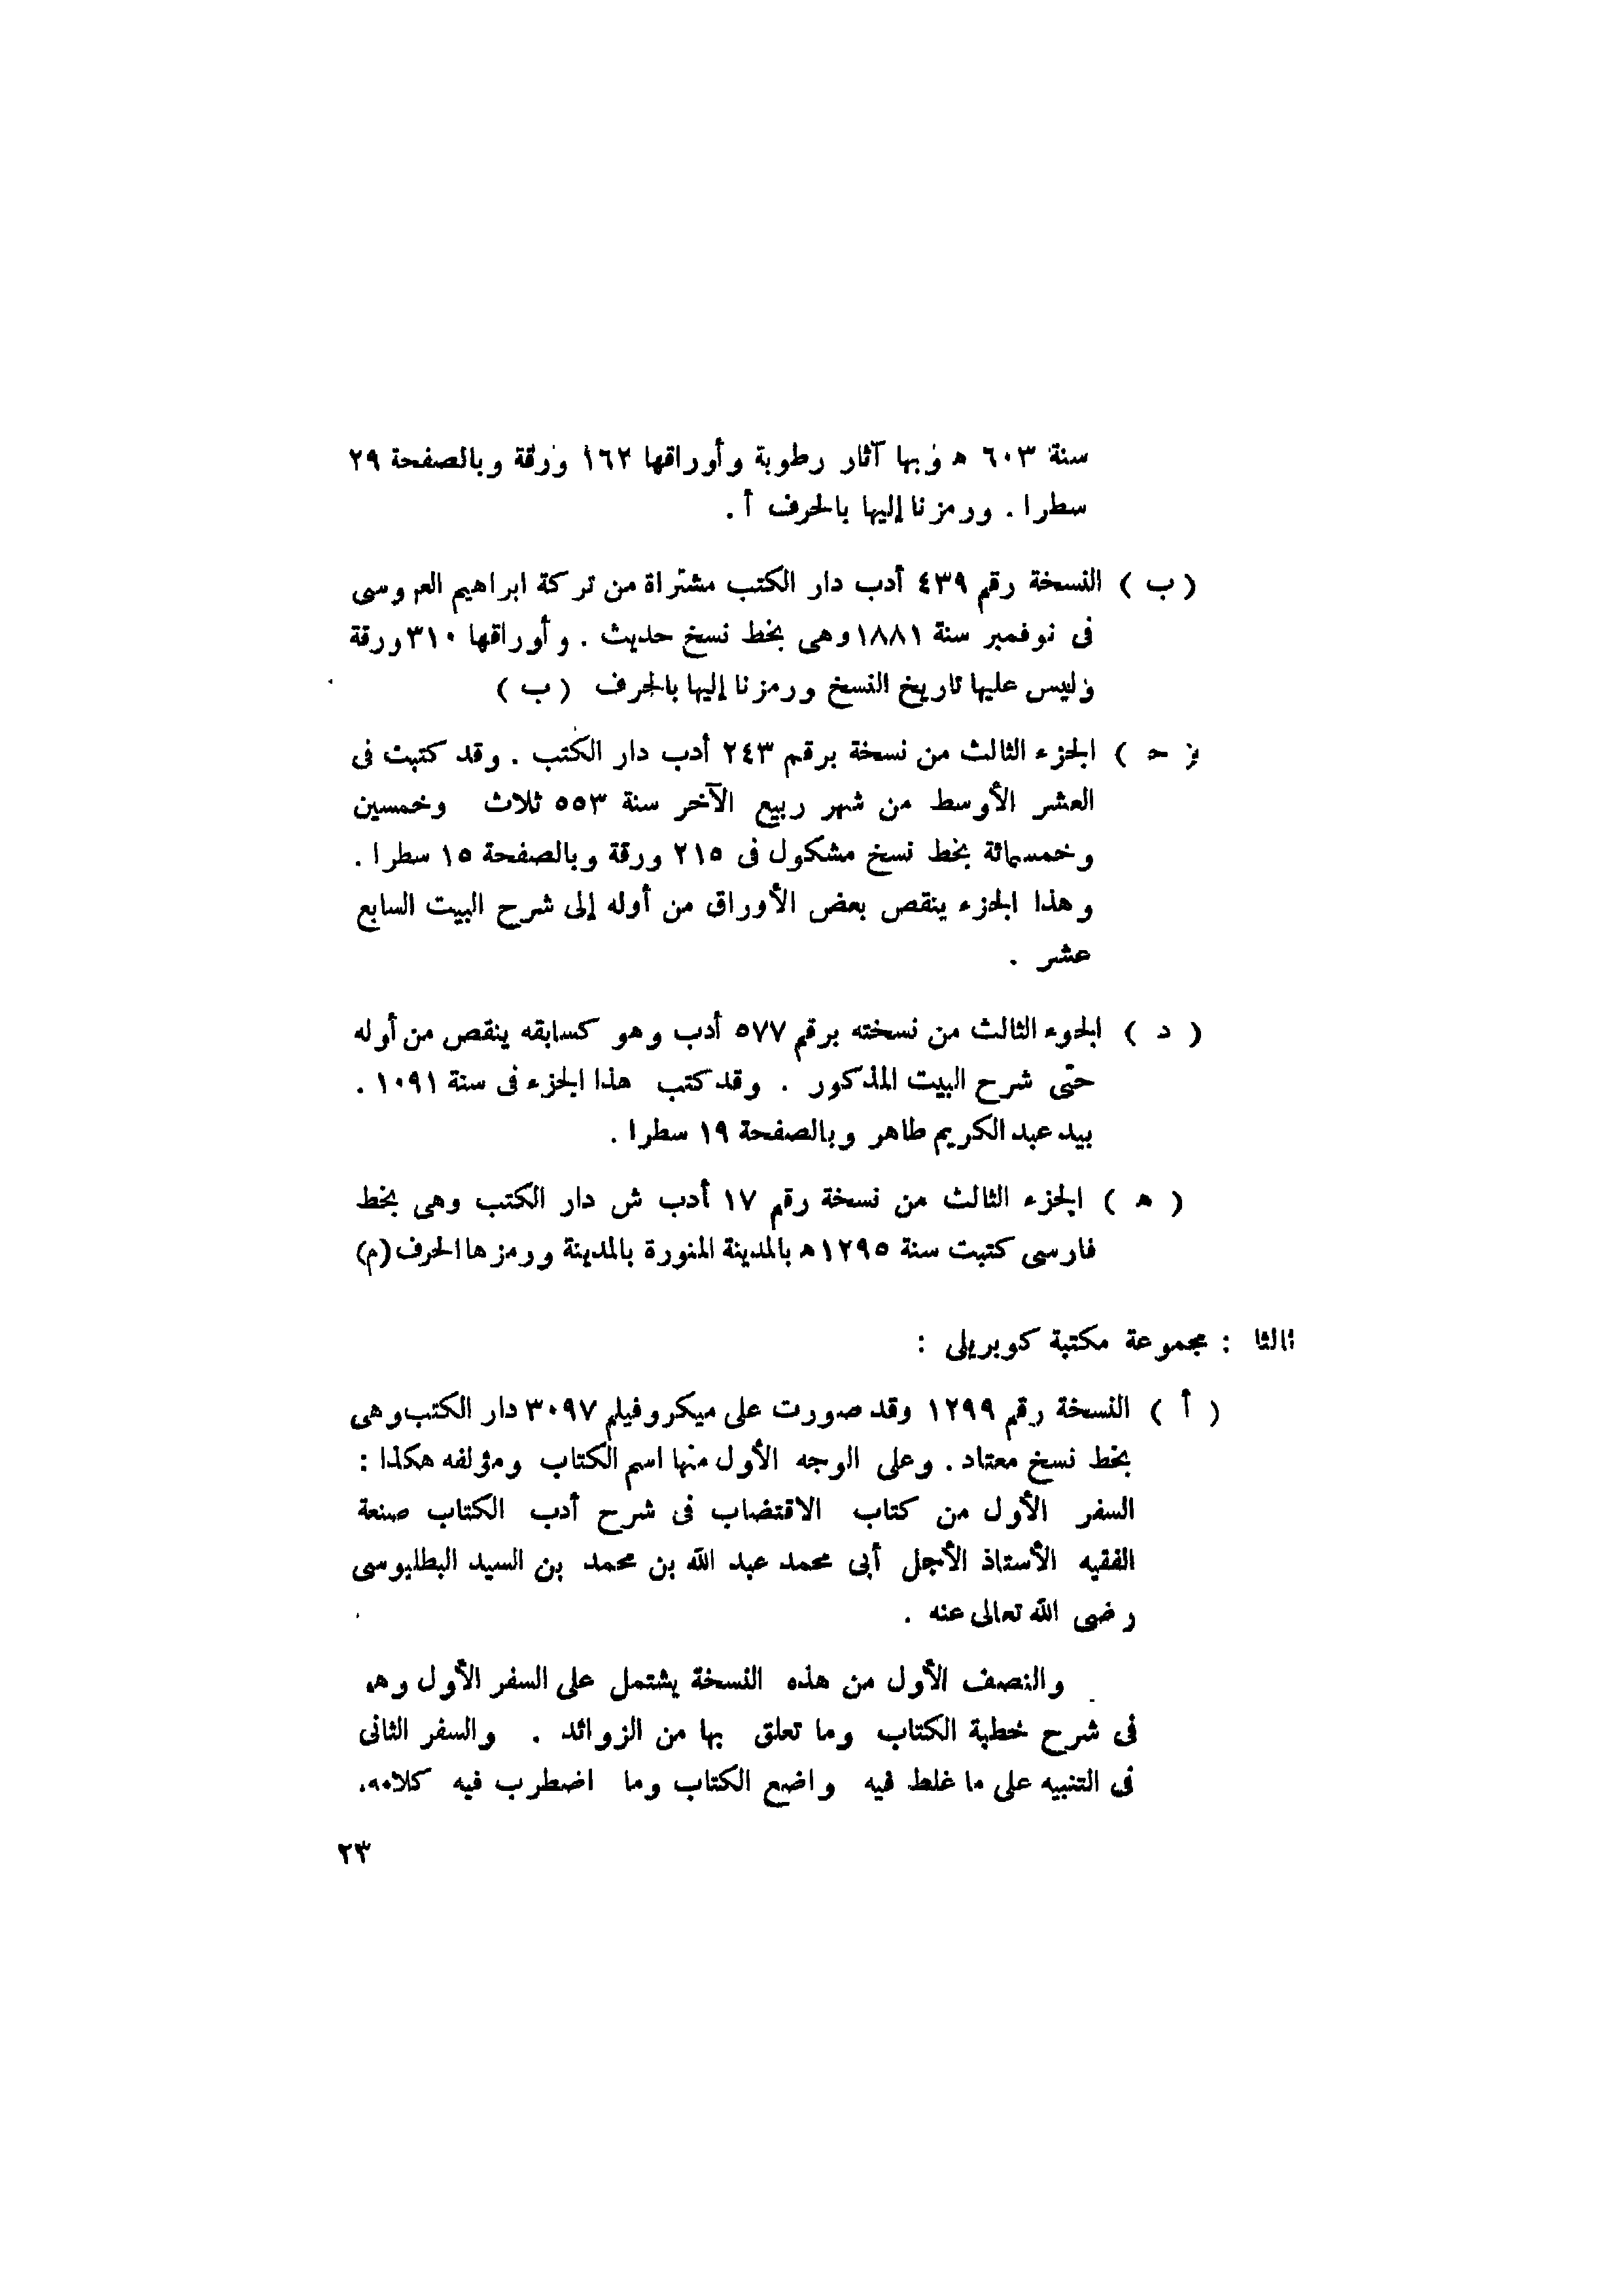 سنة ٦٠٣ ه وبها آثار رطوبة وأوراقها ١٦٢ ورقة وبالصفحة ٢٩
سطرا . ورمزنا إليها بالحرف أ .
( ب ) النسخة رقم ٤٣٩ أدب دار الكتب مشتراة من تركة ابراهيم العروسى
فى نوفمبر سنة ١٨٨١ وهى بخط نسخ حديث . وأوراقها ٣١٠ ورقة
وليس عليها تاريخ النسخ ورمزنا إليها بالحرف ( ب )
( ح ) الجزء الثالث من نسخة برقم ٢٤٣ أدب دار الكتب . وقد كتبت فى
العشر الأوسط من شهر ربيع الآخر سنة ٥٥٣ ثلاث وخمسين
وخمسمائة بخط نسخ مشكول فى ٢١٥ ورقة وبالصفحة ١٥ سطرا .
وهذا الجزء ينقص بعض الأوراق من أوله إلى شرح البيت السابع
عشر .
( د ) الجوء الثالث من نسخته برقم ٥٧٧ أدب وهو كسابقه ينقص من أوله
حتى شرح البيت المذكور . وقد كتب هذا الجزء فى سنة ١٠٩١ .
بيد عبد الكريم طاهر وبالصفحة ١٩ سطرا .
( ه ) الجزء الثالث من نسخة رقم ١٧ أدب ش دار الكتب وهى بخط
فارسى كتبت سنة ١٢٩٥ه بالمدينة المنورة بالمدينة ورمزها الحرف (م)
ثالثا : مجموعة مكتبة كوبريلى :
( أ ) النسخة رقم ١٢٩٩ وقد صورت على ميكروفيلم ٣٠٩٧ دار الكتب وهى
بخط نسخ معتاد . وعلى الوجه الأول منها اسم الكتاب ومؤلفه هكذا :
السفر الأول من كتاب الاقتضاب فى شرح أدب الكتاب صنعة
الفقيه الأستاذ الأجل أبى محمد عبد الله بن محمد بن السيد البطليوسى
رضى الله تعالى عنه .
والنصف الأول من هذه النسخة يشتمل على السفر الأول وهو
فى شرح خطبة الكتاب وما تعلق بها من الزوائد . والسفر الثانى
فى التنبيه على ما غلط فيه واضع الكتاب وما اضطرب فيه كلامه.
٢٣